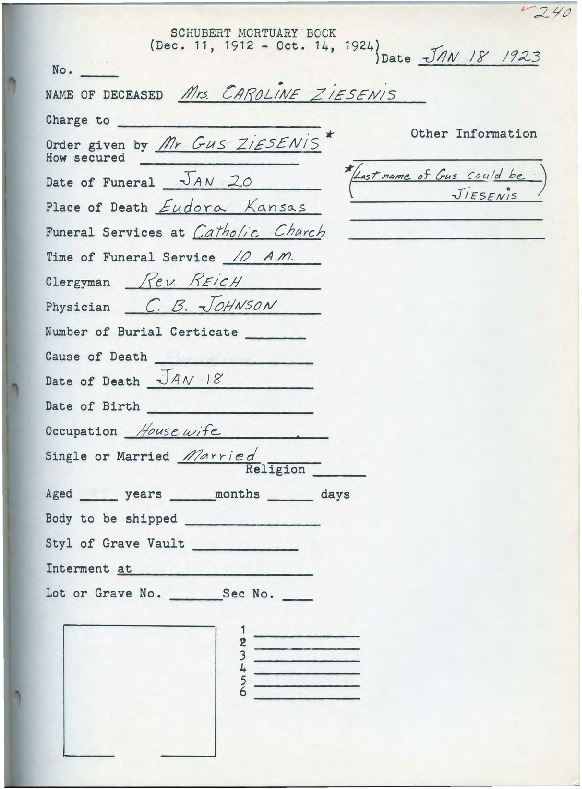 240
SCHUBERT MORTUARY BOOK
(Dec. 11, 1912 - Oct. 14, 1924)
)Date JAN 18 1923
No.
NAME OF DECEASED Mrs. CAROLINE ZIESENIS
Charge to
Order given by Mr Gus ZIESENIS *
Other Information
How secured
Date of Funeral JAN 20
*(Last name of Gus could be
JIESENIS)
Place of Death Eudora Kansas
Funeral Services at Catholic Church
Time of Funeral Service 10 A.M.
Clergyman Rev. REICH
Physician C. B. JOHNSON
Number of Burial Certicate
Cause of Death
Date of Death JAN 18
Date of Birth
Occupation Housewife
Single or Married Married
Religion
Aged years months days
Body to be shipped
Styl of Grave Vault
Interment at
Lot or Grave No. Sec No.
1
2
3
4
5
6